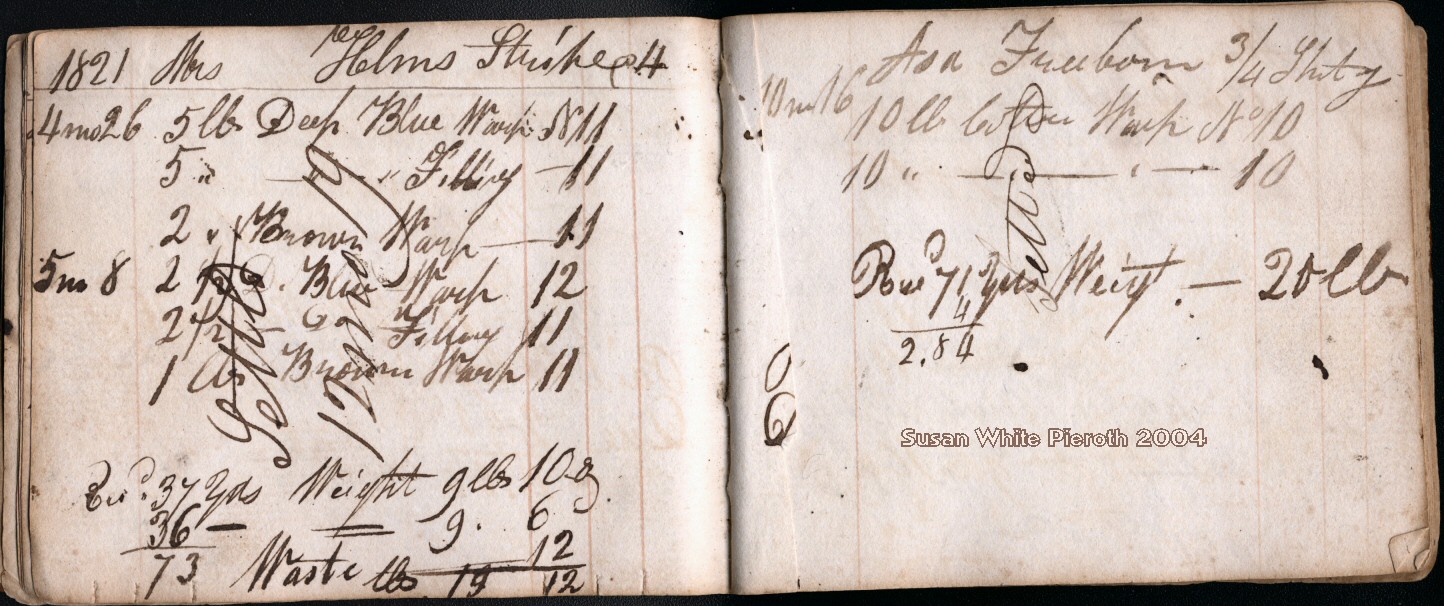 1821 Mrs Helms Stripe @ 4
4 mo 26 5 lbs Deep Blue Warp No 11
5 " — " Filling — 11
2 " Brown Warp — 11
5 m 8 2 1/2 . Blue Warp 12
2 1/2 — Do Filling 11
1 lb Brown Warp 11
Settled
Recd. 37 yds Weight 9 lbs 10 oz
36 — 9. 6
73 12
Waste lbs 19 12
Asa Freeborn 3/4 Shtg
10 m 16 10 lb Cotton Warp No 10
10 " — " — 10
Settled
Recd 71 yds Weigt. — 20 lb
4
2.84
Susan White Pieroth 2004